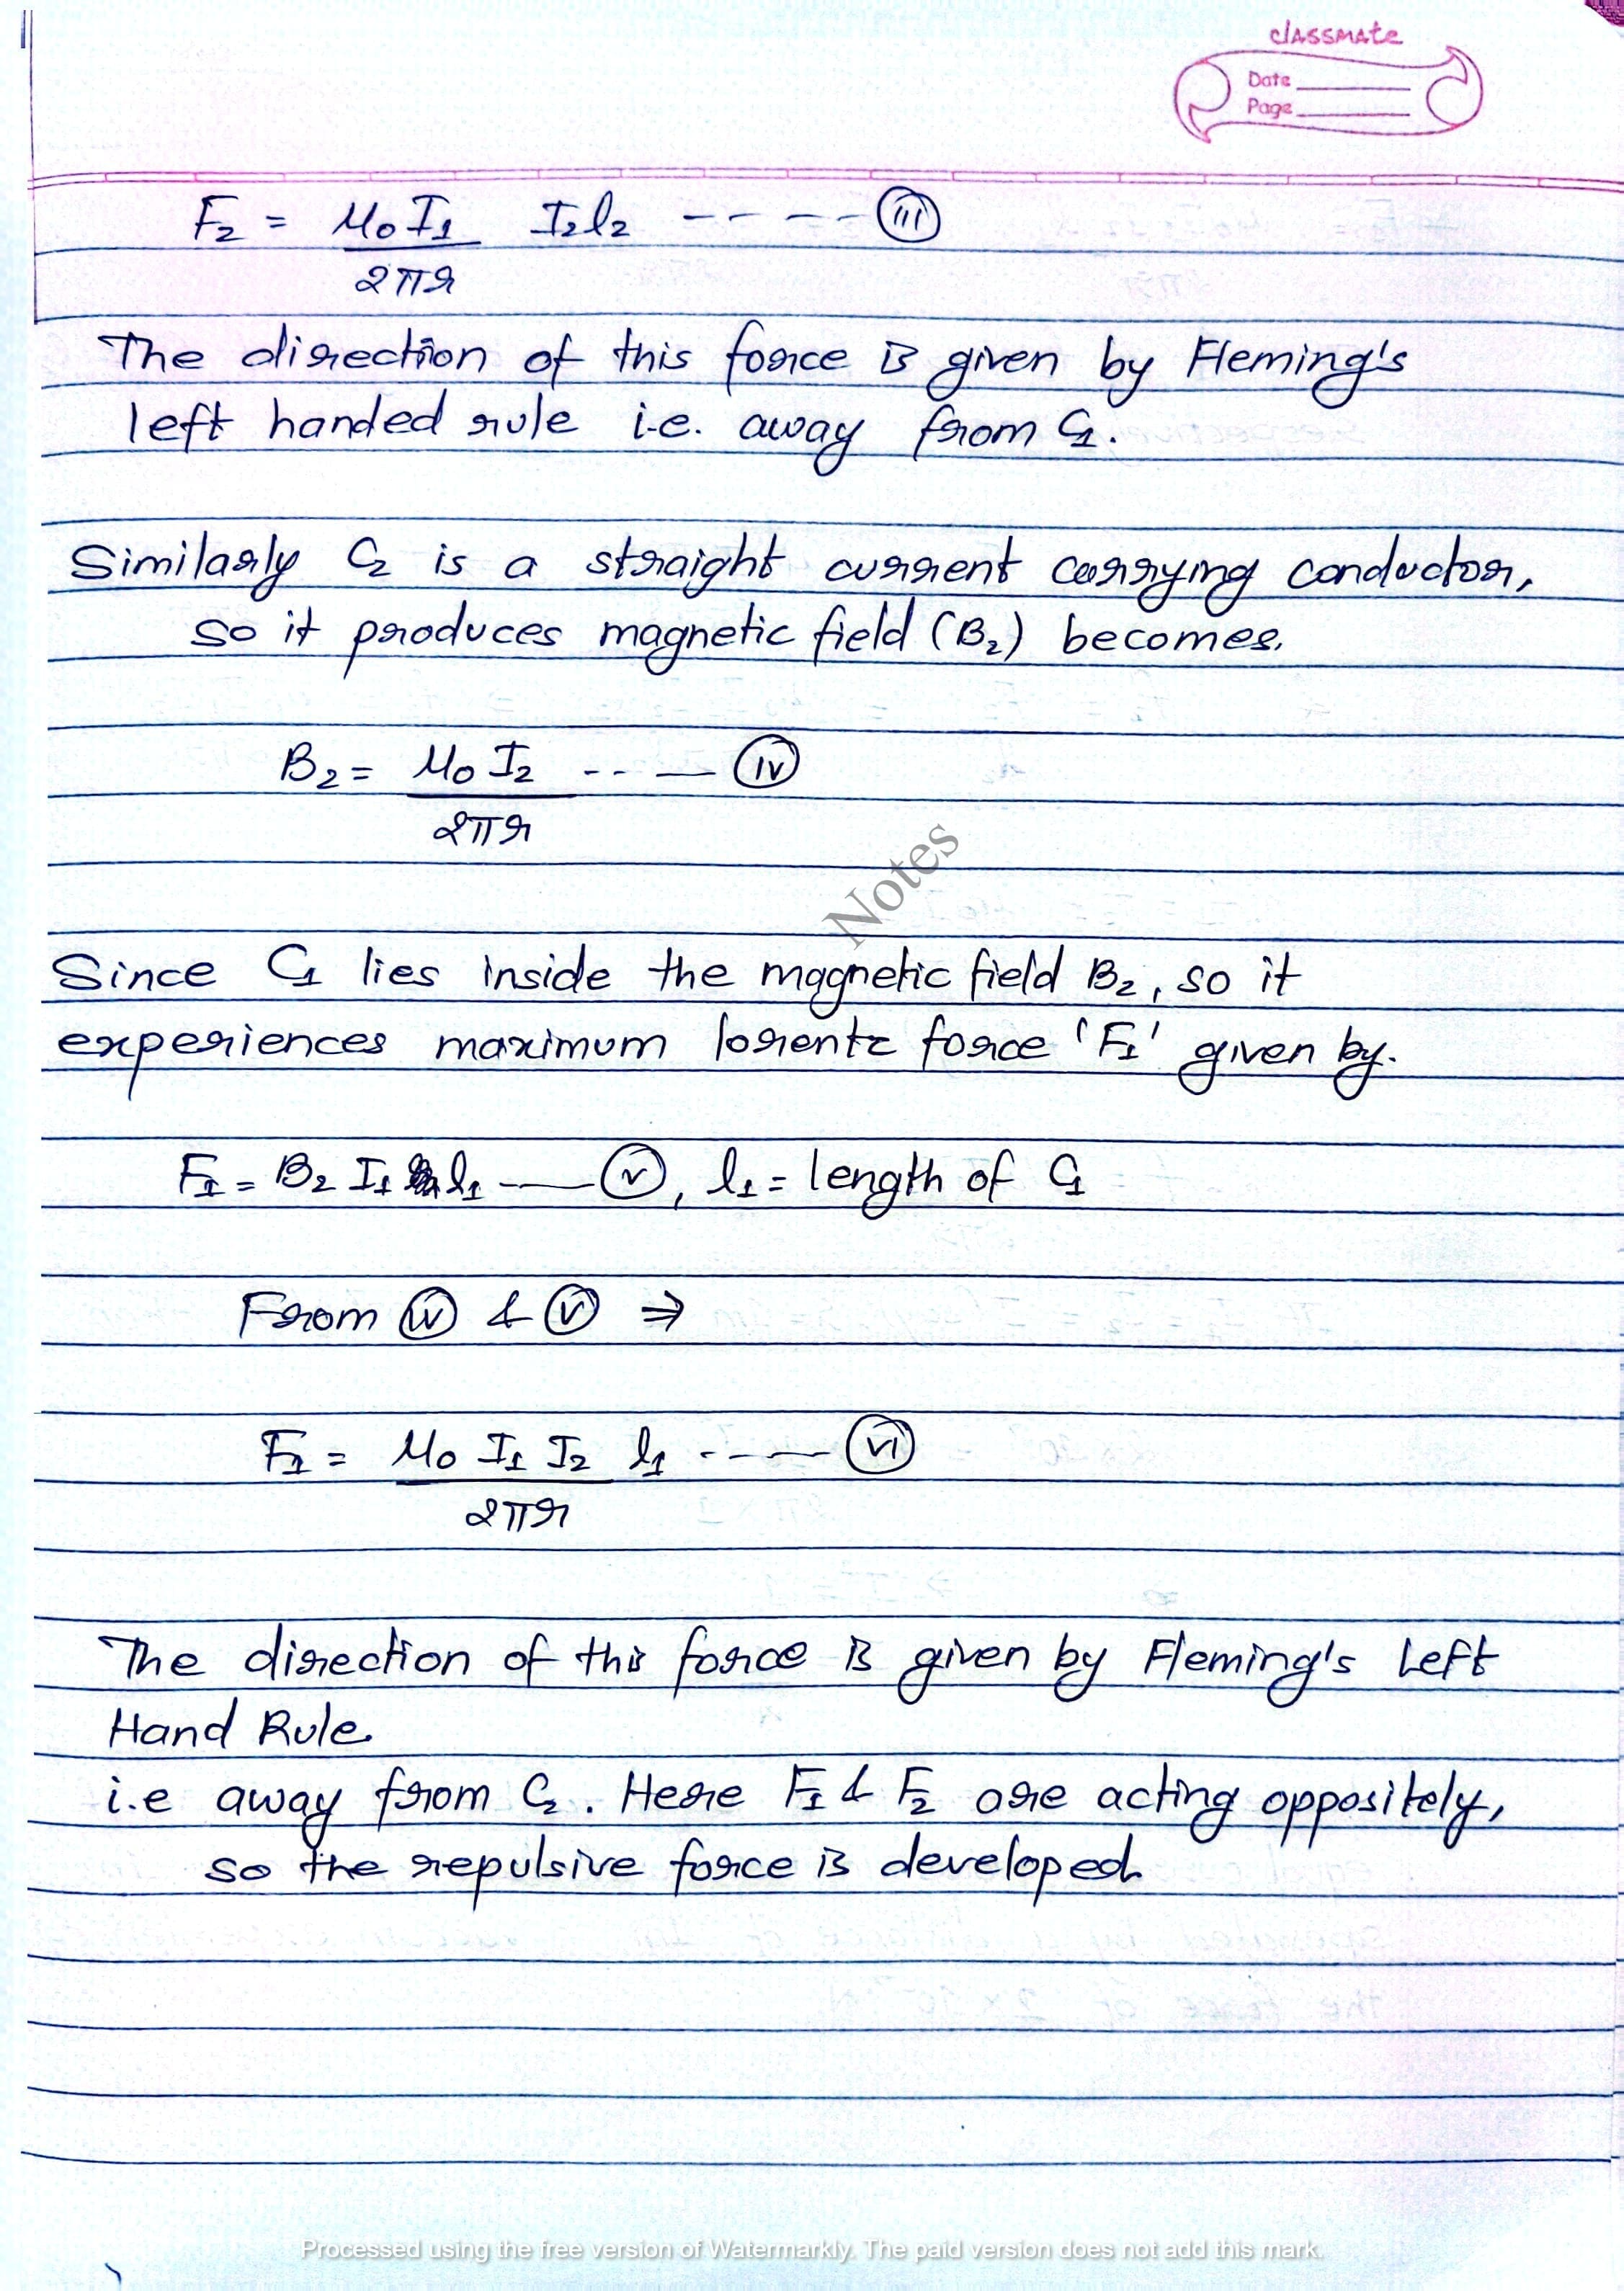 classmate
Date
Page
F₂ = μ₀I₁ I₂l₂ ----- (iii)
2πr
The direction of this force is given by Fleming's
left handed rule i.e. away from C₁.
Similarly C₂ is a straight current carrying conductor,
so it produces magnetic field (B₂) becomes.
B₂ = μ₀I₂ ---- (iv)
2πr
Notes
Since C₁ lies inside the magnetic field B₂, so it
experiences maximum lorentz force 'F₁' given by.
F₁ = B₂ I₁ l₁ ---- (v), l₁ = length of C₁
From (iv) & (v) ⇒
F₁ = μ₀ I₁ I₂ l₁ ---- (vi)
2πr
The direction of this force is given by Fleming's Left
Hand Rule.
i.e away from C₂. Here F₁ & F₂ are acting oppositely,
so the repulsive force is developed.
Processed using the free version of Watermarkly. The paid version does not add this mark.